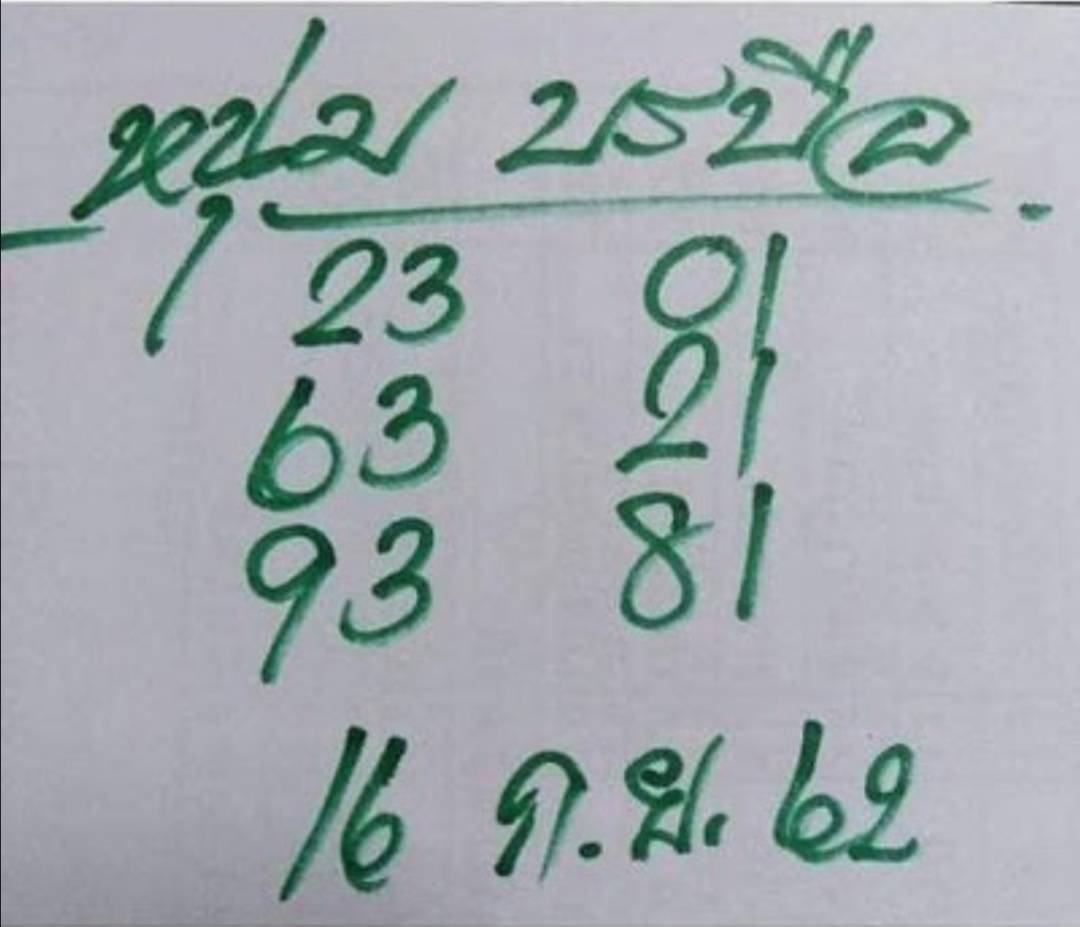 หนุ่ม บรบือ.
23 01
63 21
93 81
16 ก.ย. 62